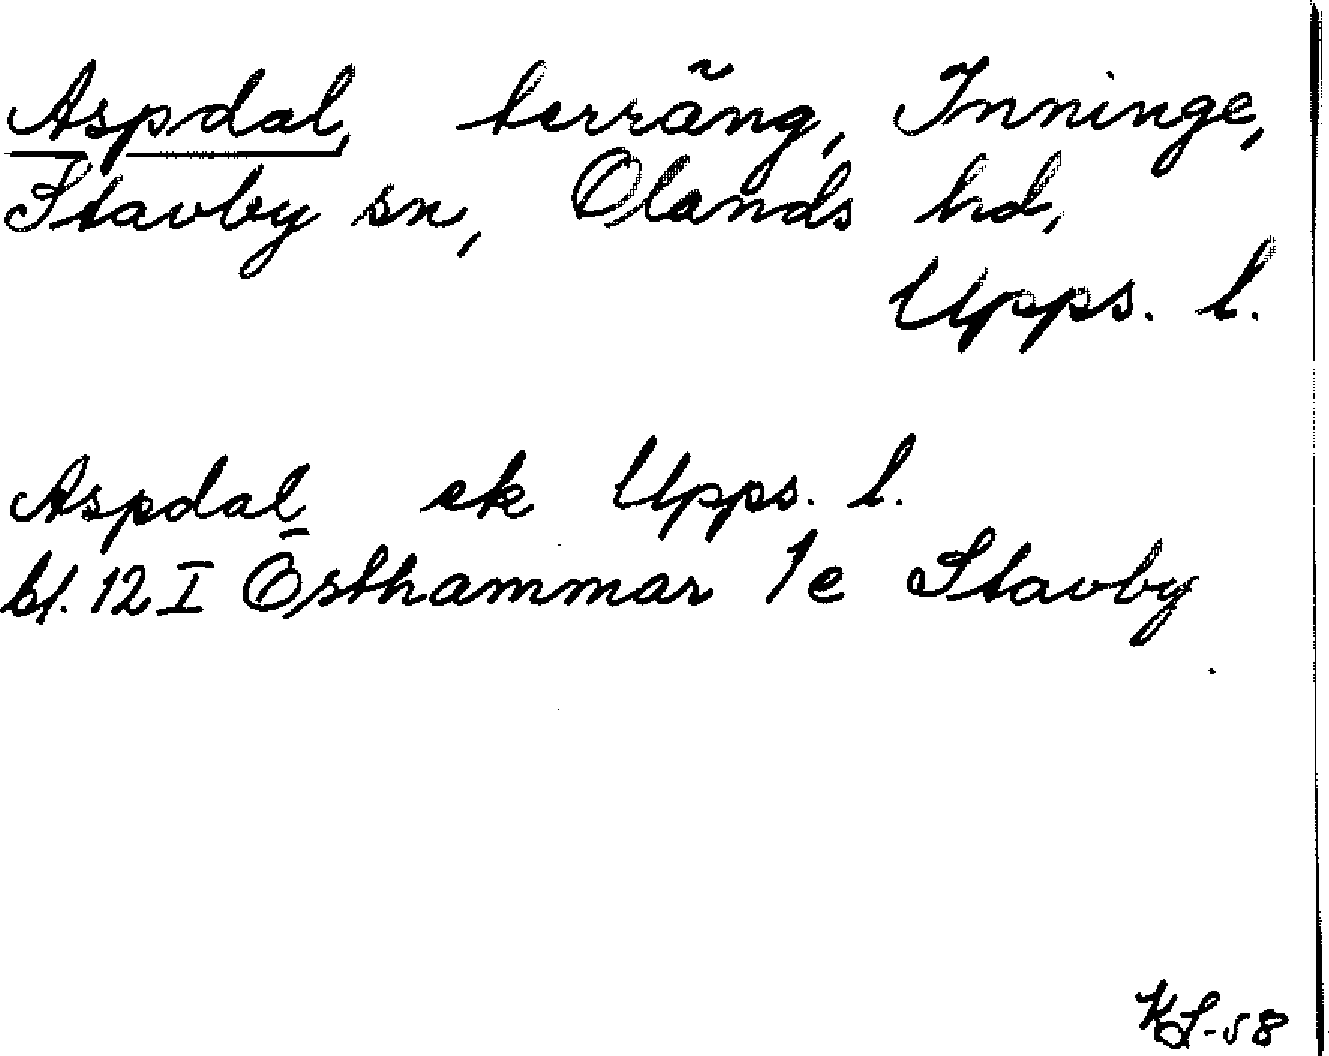 Aspdal, terräng, Inninge,
Stavby sn, Olands hd,
Upps. l.
Aspdal ek Upps. l.
bl. 12 I Östhammar 1e Stavby
KS-58